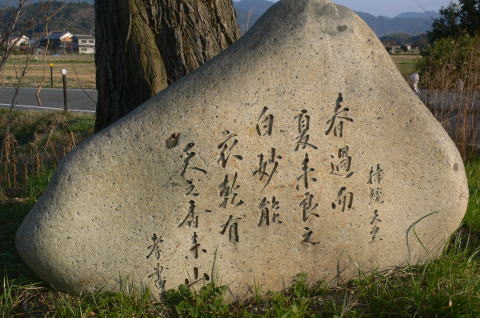 持統天皇
春過而
夏来良之
白妙能
衣乾有
天之香来山